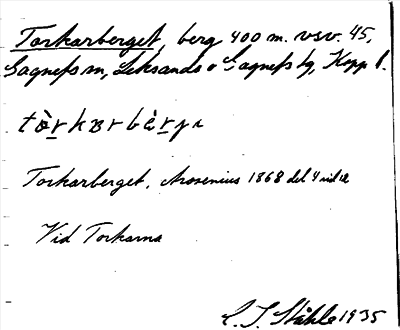 Torkarberget, berg 400 m. vsv. 45,
Gagnefs sn, Leksands o Gagnefs tg, Kopp l.
Torkarberget, Arosenius 1868 del 4 sid 12
Vid Torkarna
C. I. Ståhle 1935